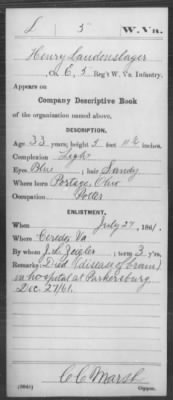 L 5 W. Va.
Henry Laudenslager
, Co. E, 5 Reg't W. Va. Infantry.
Appears on
Company Descriptive Book
of the organization named above.
DESCRIPTION.
Age 33 years; height 5 feet 11 ½ inches.
Complexion Light
Eyes Blue ; hair Sandy
Where born Portage, Ohio
Occupation Potter
ENLISTMENT.
When July 27, 1861.
Where Ceredo, Va
By whom J. L. Zeigler ; term 3 y'rs.
Remarks: Died (disease of brain)
in hospital at Parkersburg
Dec. 27/61.
C. C. Marsh
Copyist.